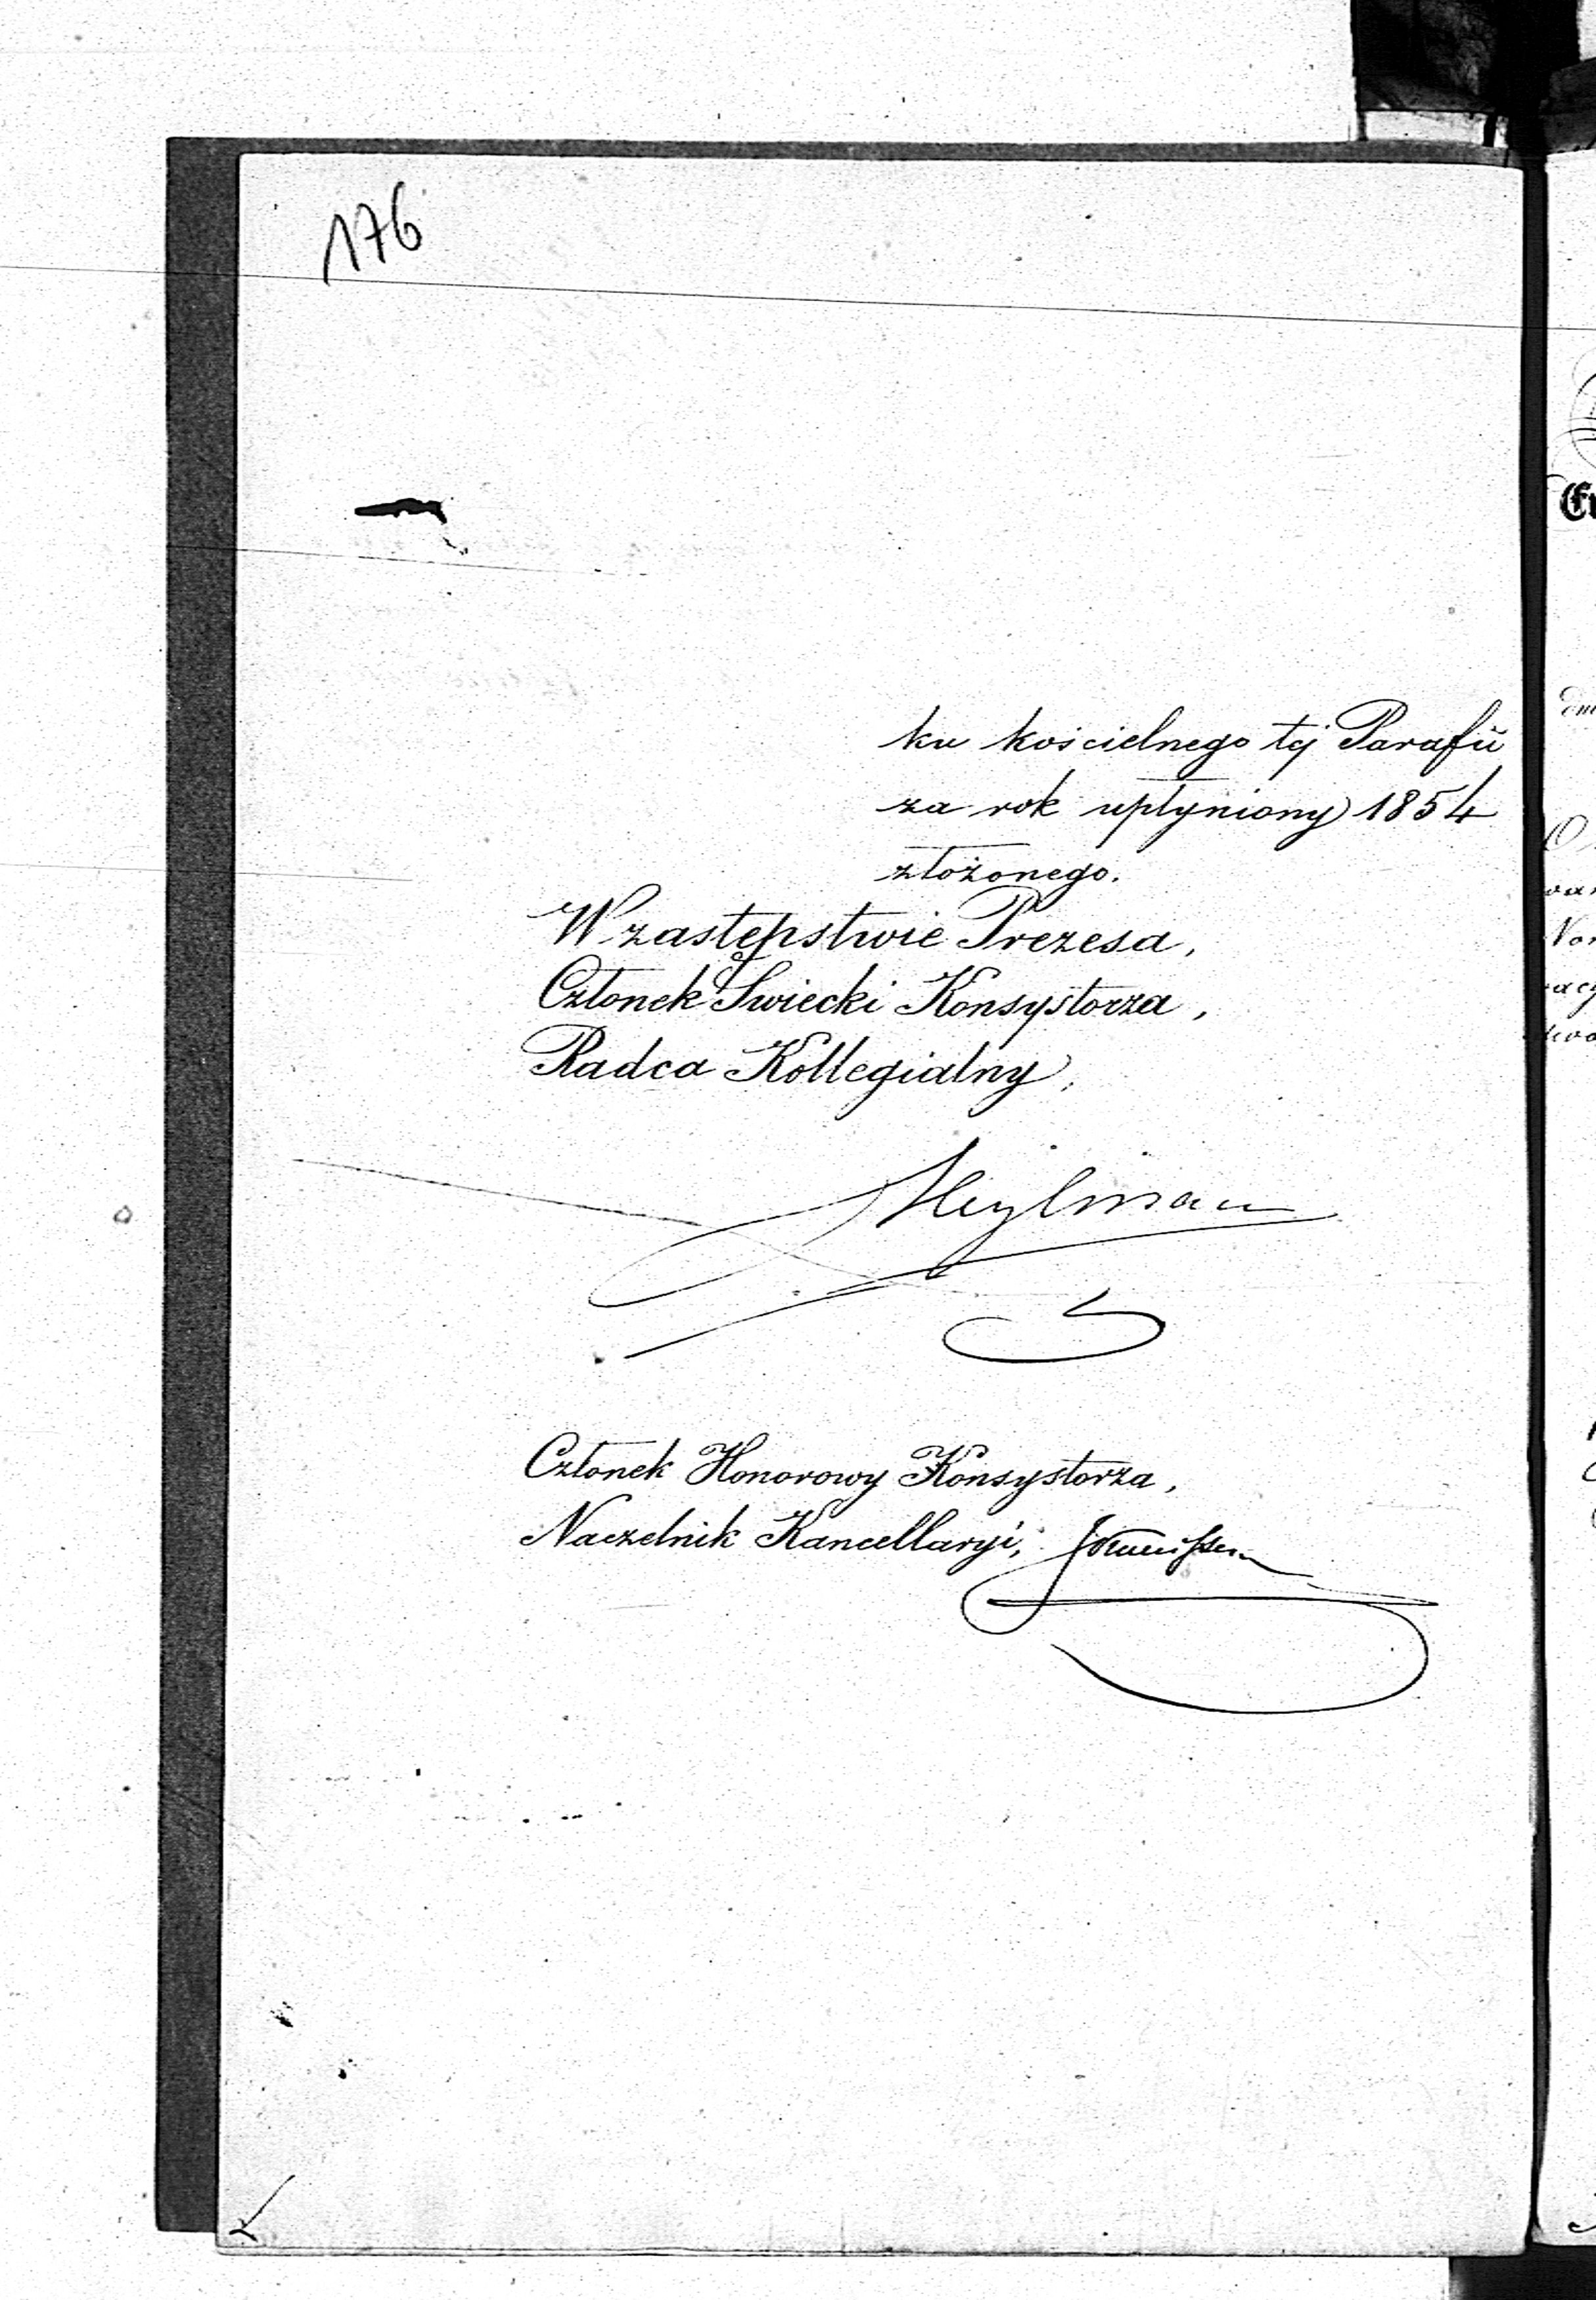 176
ku kościelnego tej Parafii
za rok upłyniony 1854
złożonego.
W zastępstwie Prezesa,
Członek Świecki Konsystorza,
Radca Kollegialny,
Heylman
Członek Honorowy Konsystorza,
Naczelnik Kancellaryi,